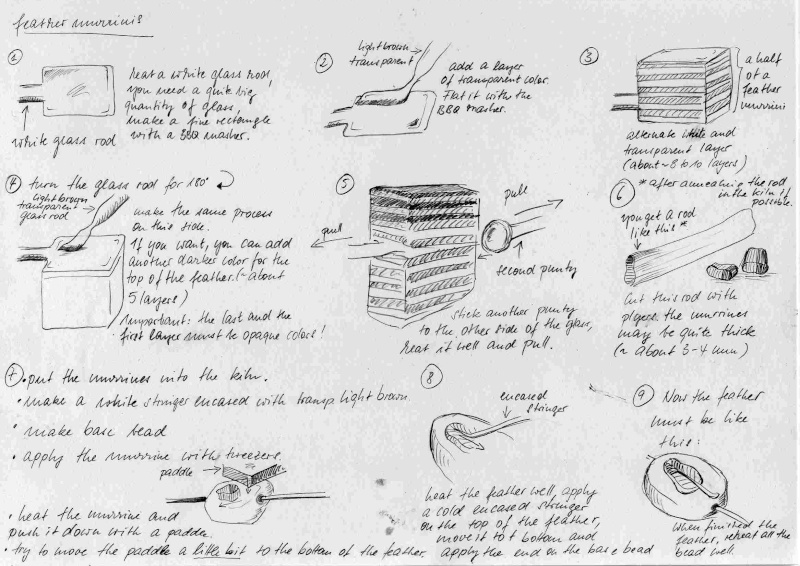 feather murrinis
1
heat a white glass rod,
you need a quite big
quantity of glass,
make a fine rectangle
with a BBQ masher.
white glass rod
2
light brown
transparent
add a layer
of transparent color.
Flat it with the
BBQ masher.
3
a half
of a
feather
murrini
alternate white and
transparent layer
(about ~ 8 to 10 layers)
4 turn the glass rod for 180°
light brown
transparent
glass rod
make the same process
on this side.
If you want, you can add
another darker color for the
top of the feather. (~ about
5 layers)
Important: the last and the
first layer must be opaque colors!
5
pull
pull
second punty
Stick another punty
to the other side of the glass,
heat it well and pull.
6
* after annealing the rod
in the kiln if
possible.
you get a rod
like this *
Cut this rod with
plyers, the murrines
may be quite thick
(~ about 3-4 mm)
7 • put the murrines into the kiln.
• make a white stringer encased with transp. light brown
• make base bead
• apply the murrine with tweezers.
paddle
• heat the murrine and
push it down with a paddle.
• try to move the paddle a little bit to the bottom of the feather.
8
encased
stringer
heat the feather well, apply
a cold encased stringer
on the top of the feather,
move it to bottom and
apply the end on the base bead
9 Now the feather
must be like
this:
When finished the
feather, reheat all the
bead well.